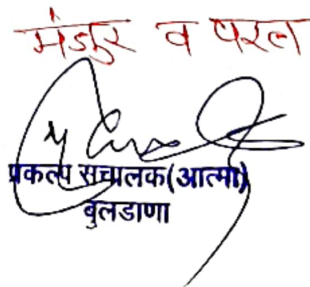 मंजुर व परत
प्रकल्प संचालक(आत्मा)
बुलडाणा